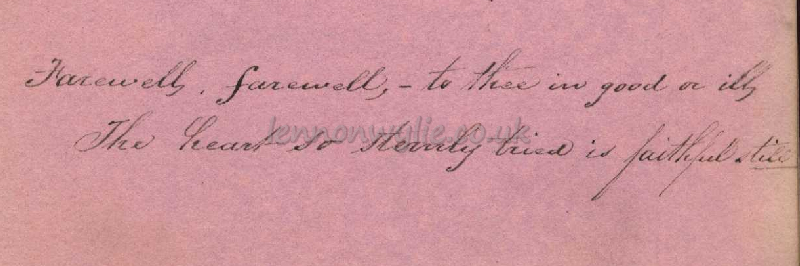 Farewell, farewell, - to thee in good or ill,
lennonwylie.co.uk
The heart so sternly tried is faithful still